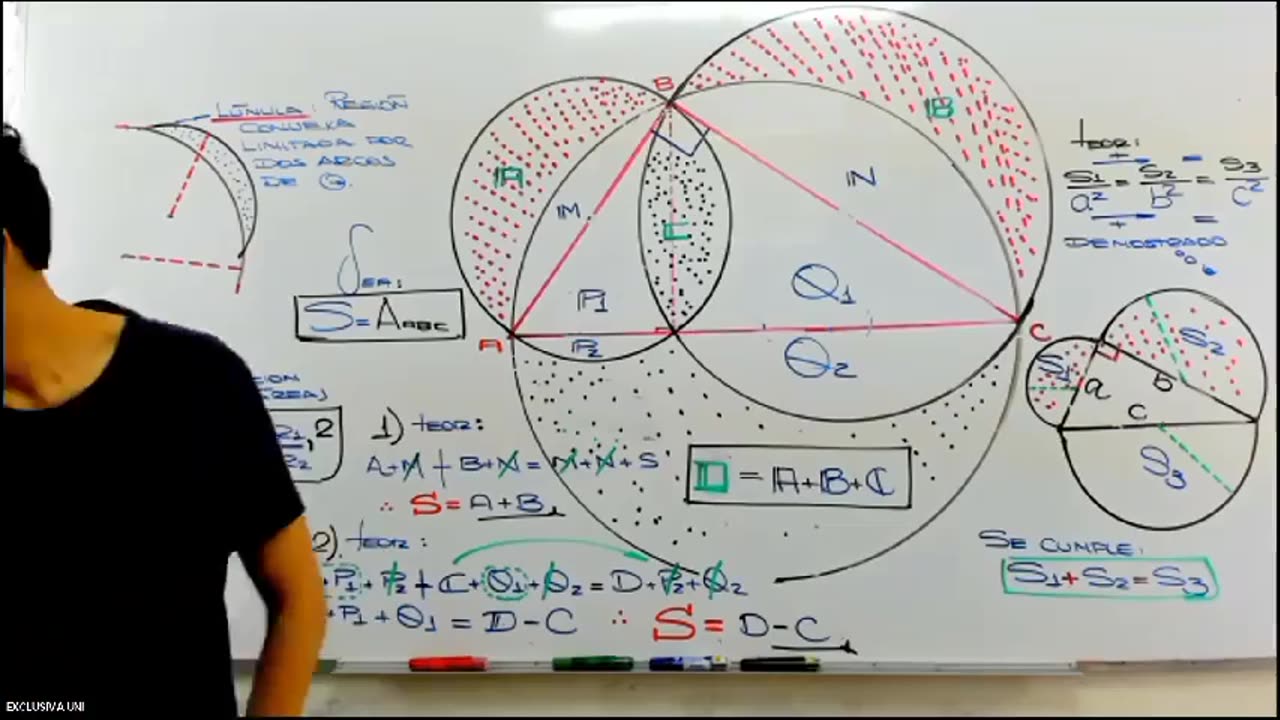 LÚNULA: REGIÓN
CONVEXA
LIMITADA POR
DOS ARCOS
DE
SEA:
S=AABC
1) TEOR:
A+M+B+N=M+N+S
∴ S=A+B
2) TEOR:
+P1+P2+C+Q1+Q2=D+P2+Q2
+P1+Q1=D-C ∴ S=D-C
B
A
M
C
N
B
P1
Q1
A
C
P2
Q2
D=A+B+C
TEOR:
S1/a²=S2/b²=S3/c²
DEMOSTRADO
S1
S2
a
b
c
S3
SE CUMPLE:
S1+S2=S3
EXCLUSIVA UNI